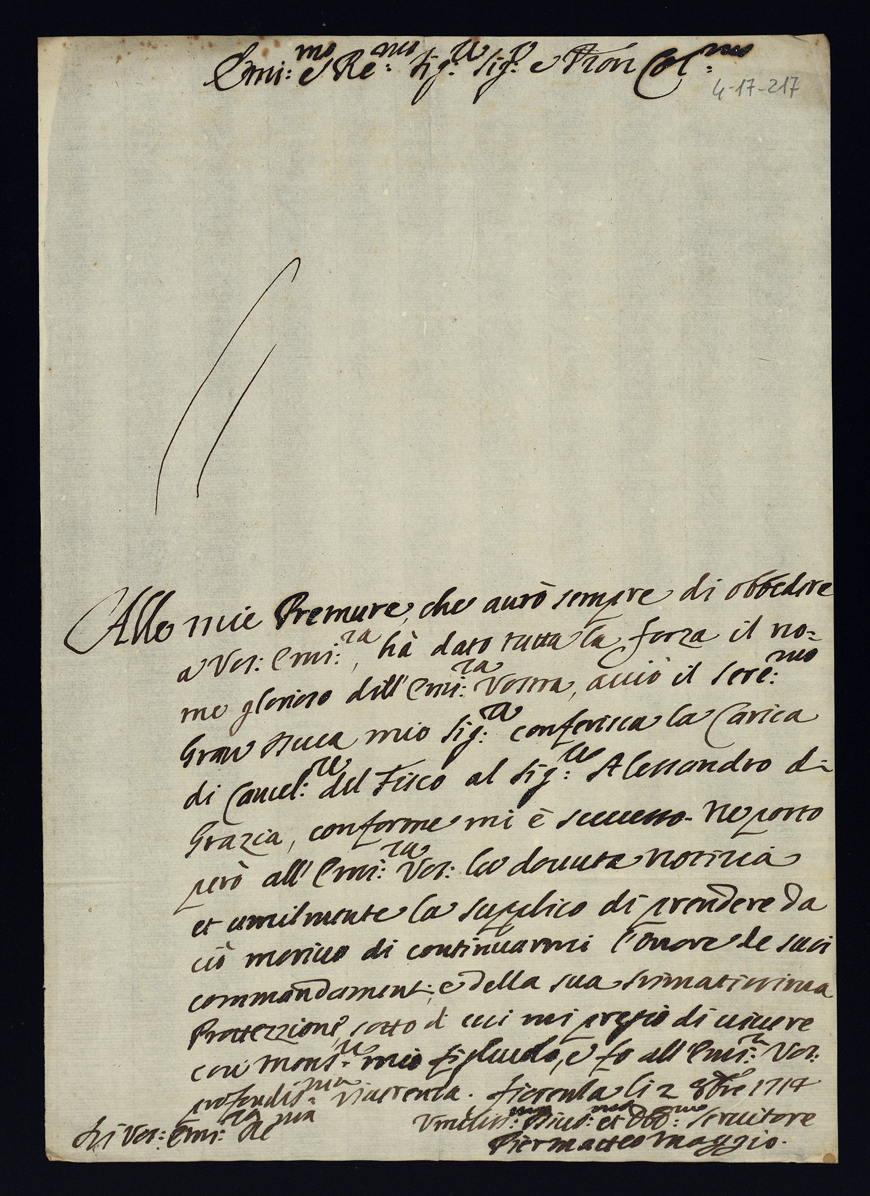 Emi:mo e Re:mo Sig:re Sig:re e Pron Col:mo
4-17-217
Alle mie Premure, che aurò sempre di obbedire
a Vos: Emi:za, hà dato tutta la forza il no=
me glorioso dell'Emi:za Vostra, acciò il Sere:mo
Gran Duca mio Sig:re conferisca la Carica
di Cancel:re del Fisco al Sig:re Alessandro d=
Grazia, conforme mi è successo. Ne porto
però all'Emi:za Vos: la douuta notizia
et umilmente la supplico di prendere da
ciò motiuo di continuarmi l'Onore de suoi
commandament: e della sua stimatissima
Protezzione, sotto di cui mi pregio di uiuere
con Mons:re mio figliuolo, e fo all'Emi:za Vos:
profondis:ma riuerenza. Fiorenza li 2 8bre 1714
Di Vos: Emi:za Re:ma
Vmilis:mo Diuo:mo et Obb:mo Seruitore
Piermatteo Maggio.